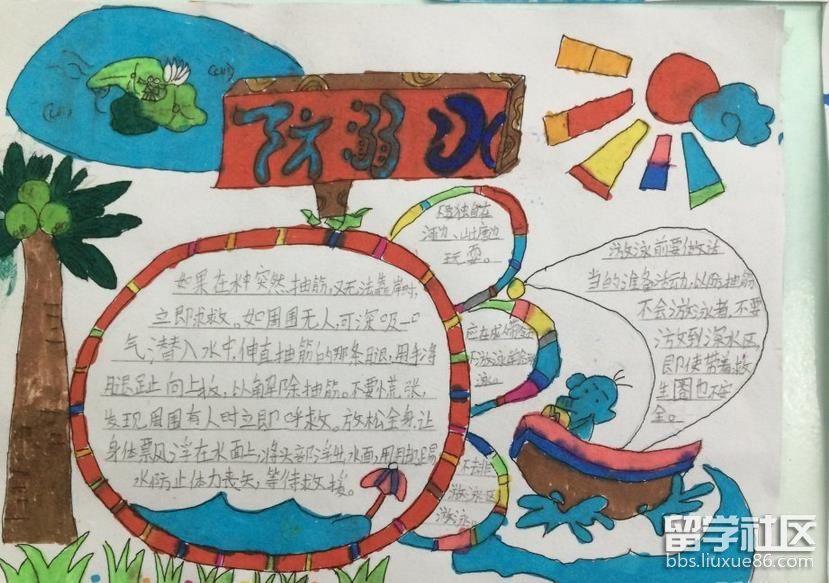 防溺水
不要独自在
河边、山塘边
玩耍。
如果在水中突然抽筋,又无法靠岸时,
立即求救。如周围无人,可深吸一口
气潜入水中,伸直抽筋的那条腿,用手将
脚趾向上扳,以解除抽筋。不要慌张,
发现周围有人时立即呼救。放松全身,让
身体飘浮在水面上,将头部浮出水面,用脚踢
水,防止体力丧失,等待救援。
应在成人带
下游泳学会
泳。
不去非
游泳区
游泳。
游泳前要做适
当的准备活动,以防抽筋
不会游泳者,不要
游到深水区,
即使带着救
生圈也不安
全。
留学社区
bbs.liuxue86.com